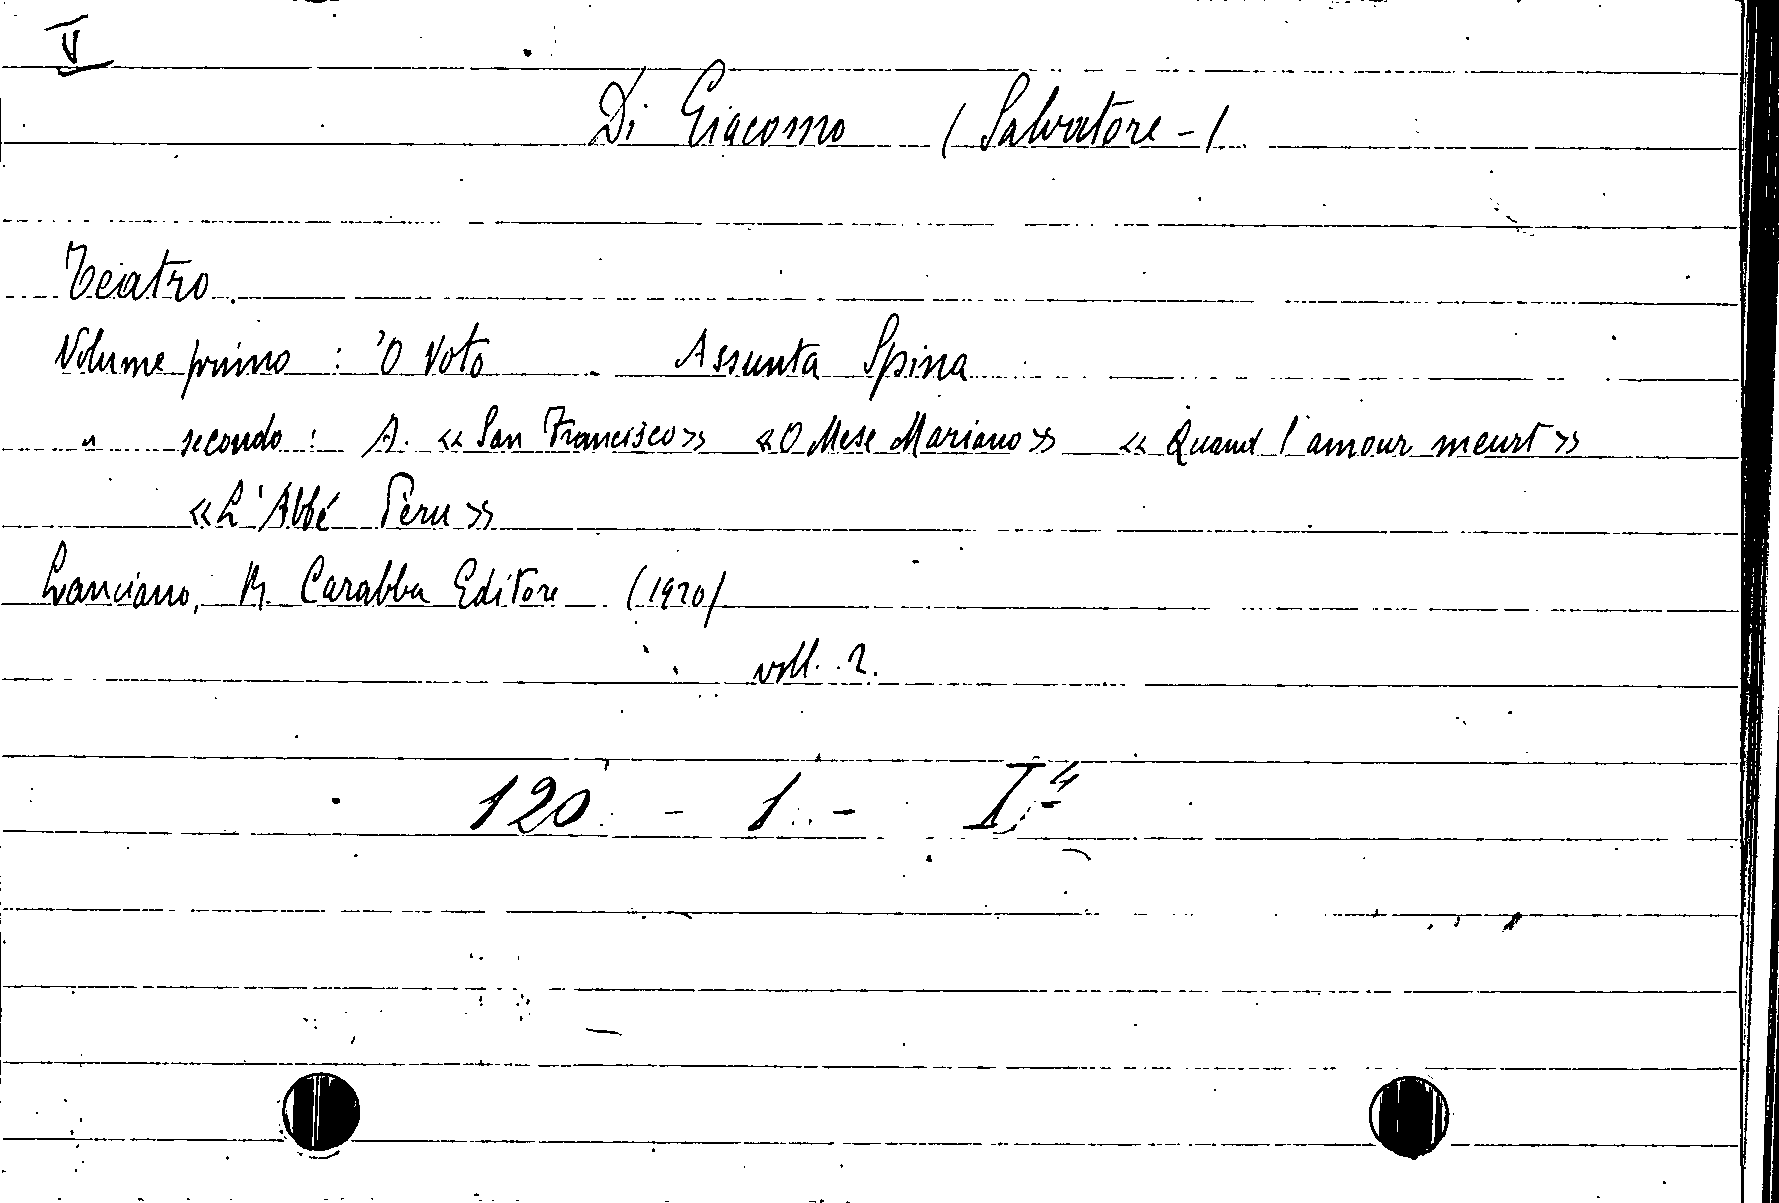 V
Di Giacomo (Salvatore-)
Teatro.
Volume primo : 'O Voto - Assunta Spina
" secondo : A. «San Francisco» «O Mese Mariano» «Quand l'amour meurt»
«L'Abbé Peru»
Lanciano, R. Carabba Editore (1920)
voll. 2.
120 - 1 - I-4